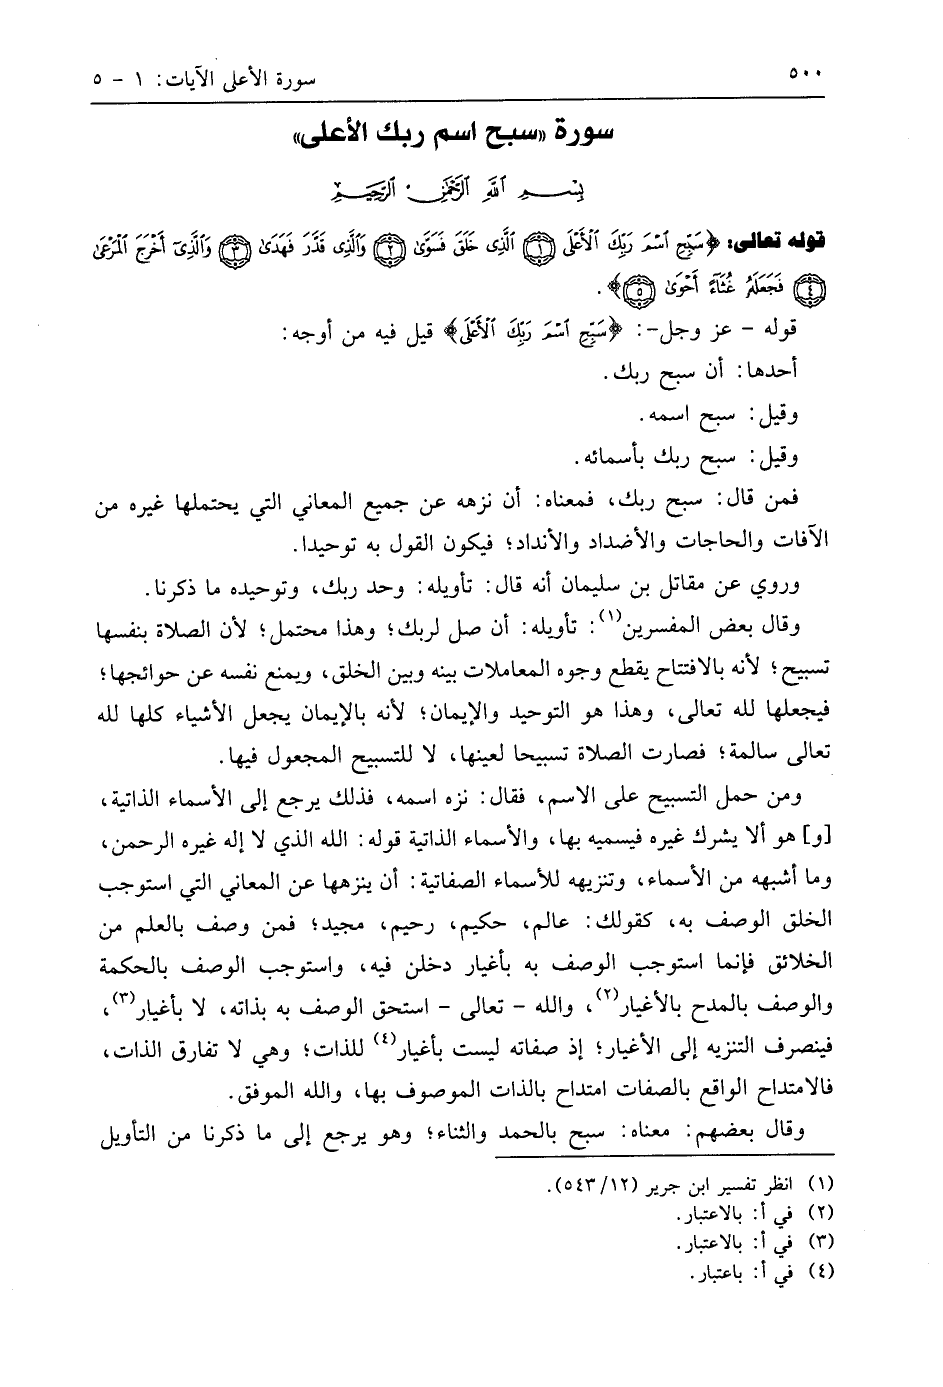 ٥٠٠ سورة الأعلى الآيات: ١ - ٥
سورة «سبح اسم ربك الأعلى»
بِسْمِ اللَّهِ الرَّحْمَٰنِ الرَّحِيمِ
قوله تعالى: ﴿سَبِّحِ اسْمَ رَبِّكَ الْأَعْلَى ﴿١﴾ الَّذِي خَلَقَ فَسَوَّىٰ ﴿٢﴾ وَالَّذِي قَدَّرَ فَهَدَىٰ ﴿٣﴾ وَالَّذِي أَخْرَجَ الْمَرْعَىٰ
﴿٤﴾ فَجَعَلَهُ غُثَاءً أَحْوَىٰ ﴿٥﴾﴾.
قوله - عز وجل-: ﴿سَبِّحِ اسْمَ رَبِّكَ الْأَعْلَى﴾ قيل فيه من أوجه:
أحدها: أن سبح ربك.
وقيل: سبح اسمه.
وقيل: سبح ربك بأسمائه.
فمن قال: سبح ربك، فمعناه: أن نزهه عن جميع المعاني التي يحتملها غيره من
الآفات والحاجات والأضداد والأنداد؛ فيكون القول به توحيدا.
وروي عن مقاتل بن سليمان أنه قال: تأويله: وحد ربك، وتوحيده ما ذكرنا.
وقال بعض المفسرين(١): تأويله: أن صل لربك؛ وهذا محتمل؛ لأن الصلاة بنفسها
تسبيح؛ لأنه بالافتتاح يقطع وجوه المعاملات بينه وبين الخلق، ويمنع نفسه عن حوائجها؛
فيجعلها لله تعالى، وهذا هو التوحيد والإيمان؛ لأنه بالإيمان يجعل الأشياء كلها لله
تعالى سالمة؛ فصارت الصلاة تسبيحا لعينها، لا للتسبيح المجعول فيها.
ومن حمل التسبيح على الاسم، فقال: نزه اسمه، فذلك يرجع إلى الأسماء الذاتية،
[و] هو ألا يشرك غيره فيسميه بها، والأسماء الذاتية قوله: الله الذي لا إله غيره الرحمن،
وما أشبهه من الأسماء، وتنزيهه للأسماء الصفاتية: أن ينزهها عن المعاني التي استوجب
الخلق الوصف به، كقولك: عالم، حكيم، رحيم، مجيد؛ فمن وصف بالعلم من
الخلائق فإنما استوجب الوصف به بأغيار دخلن فيه، واستوجب الوصف بالحكمة
والوصف بالمدح بالأغيار(٢)، والله - تعالى - استحق الوصف به بذاته، لا بأغيار(٣)،
فينصرف التنزيه إلى الأغيار؛ إذ صفاته ليست بأغيار(٤) للذات؛ وهي لا تفارق الذات،
فالامتداح الواقع بالصفات امتداح بالذات الموصوف بها، والله الموفق.
وقال بعضهم: معناه: سبح بالحمد والثناء؛ وهو يرجع إلى ما ذكرنا من التأويل
(١) انظر تفسير ابن جرير (١٢/٥٤٣).
(٢) في أ: بالاعتبار.
(٣) في أ: بالاعتبار.
(٤) في أ: باعتبار.